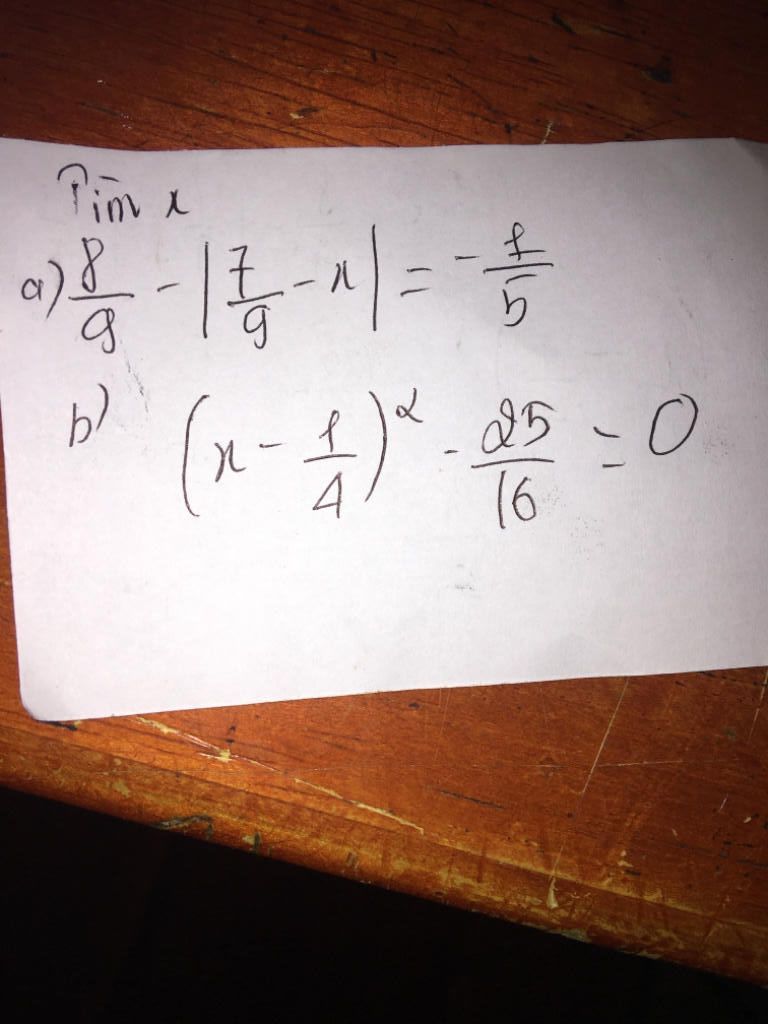 Tìm x
a) 8/9 - |7/9 - x| = -1/5
b) (x - 1/4)² - 25/16 = 0